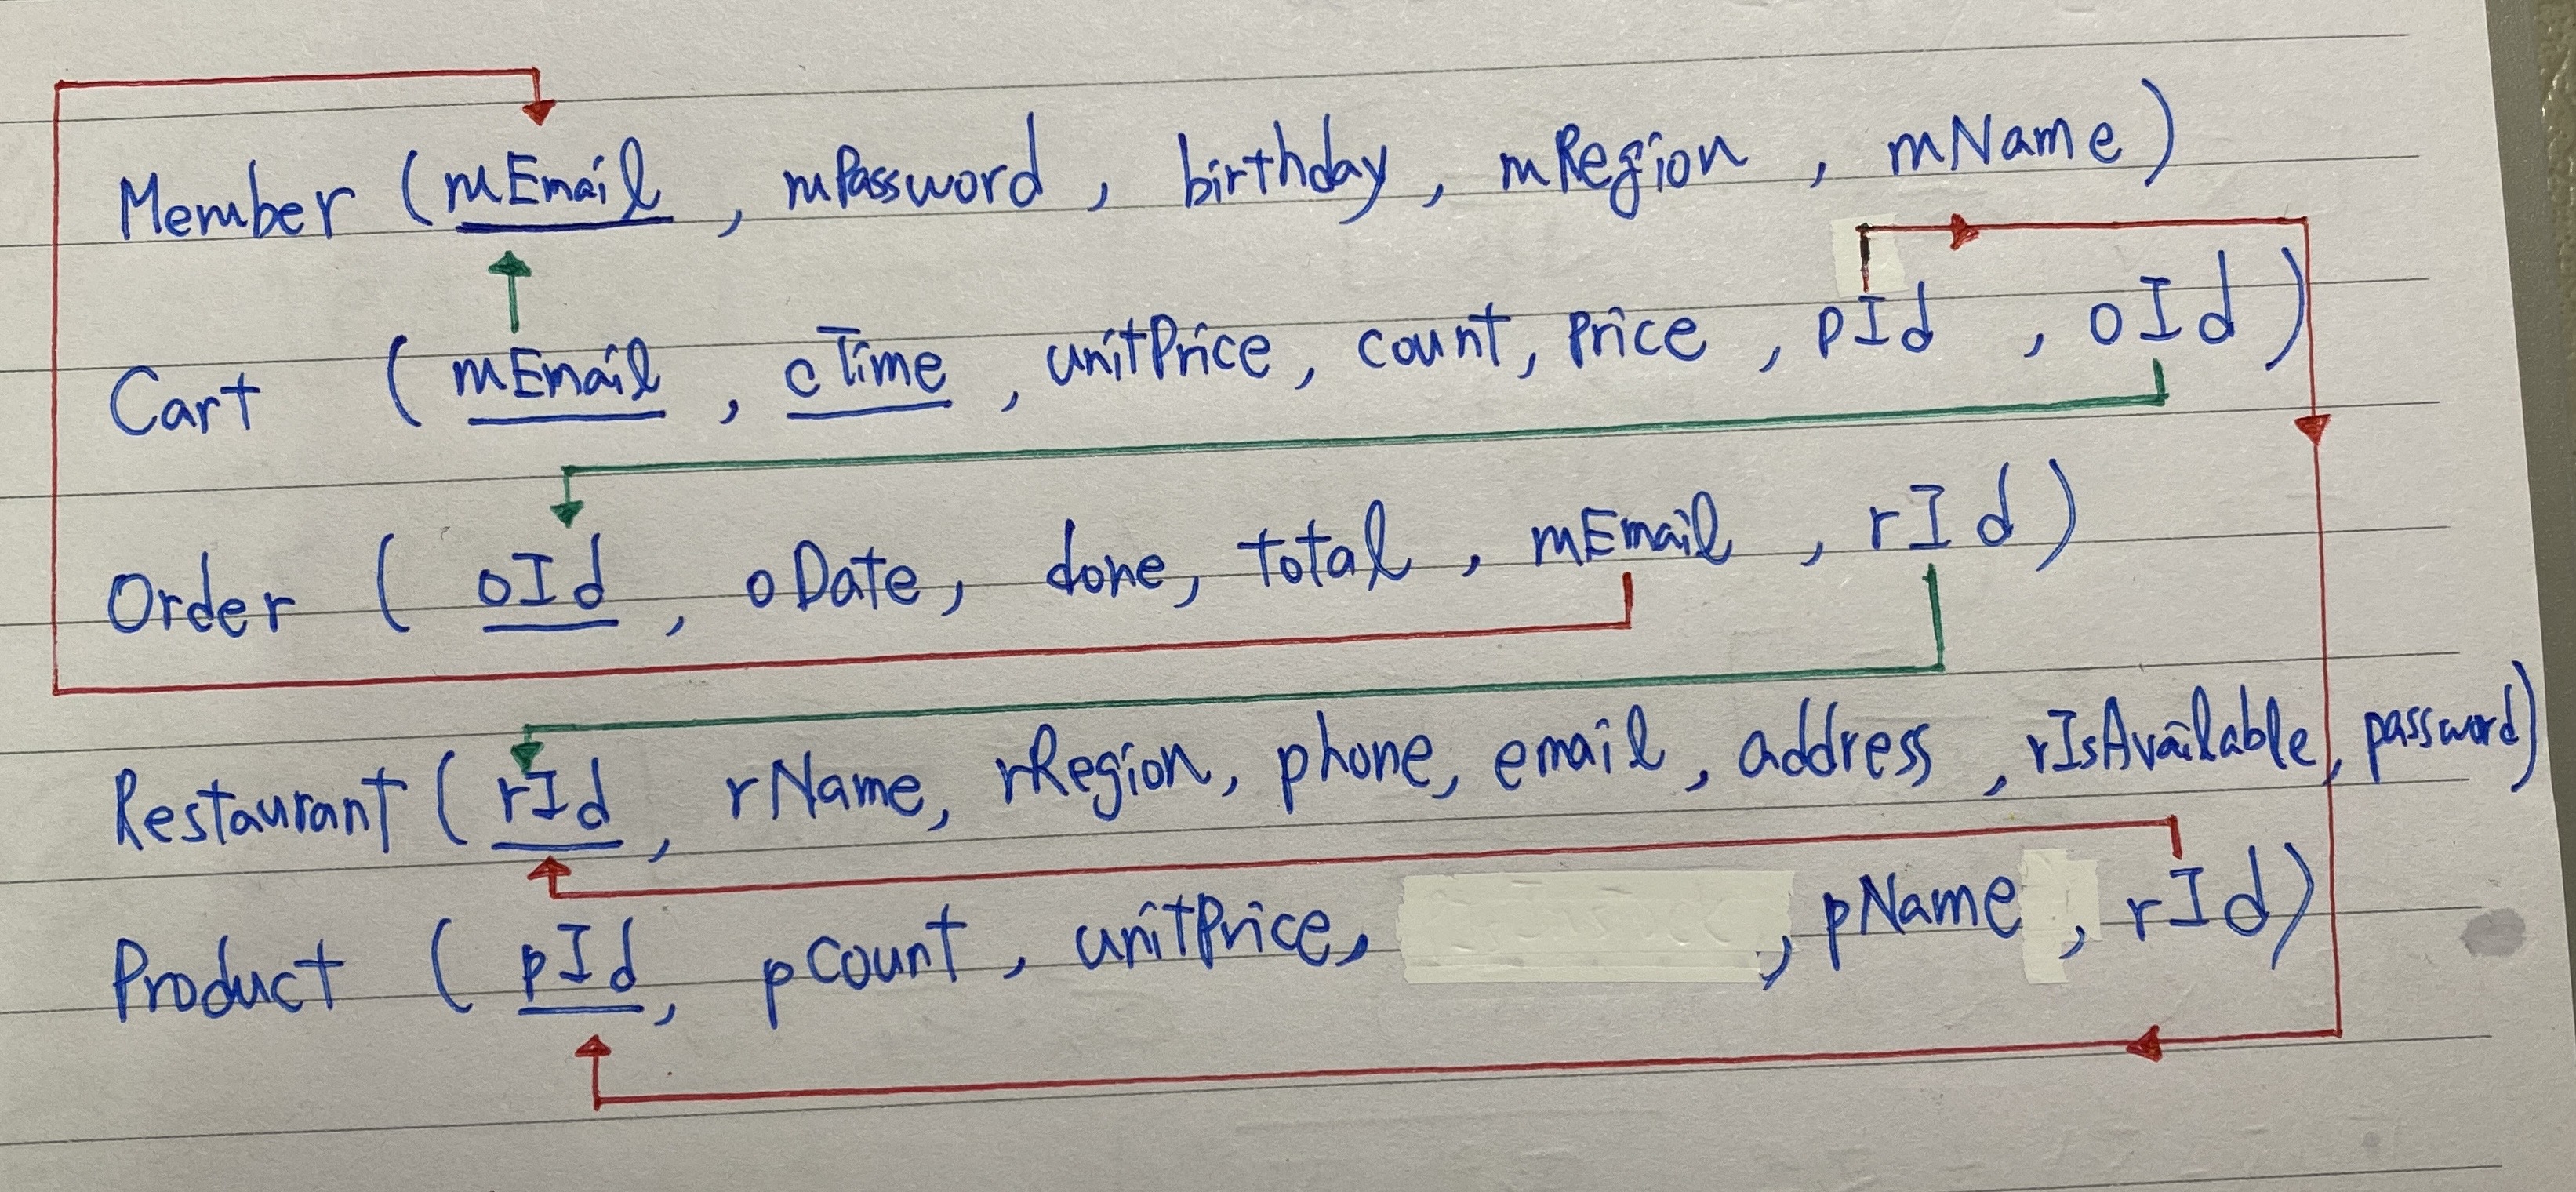 Member (mEmail, mPassword, birthday, mRegion, mName)
Cart (mEmail, cTime, unitPrice, count, price, pId, oId)
Order (oId, oDate, done, total, mEmail, rId)
Restaurant (rId, rName, rRegion, phone, email, address, rIsAvailable, password)
Product (pId, pCount, unitPrice, , pName, rId)